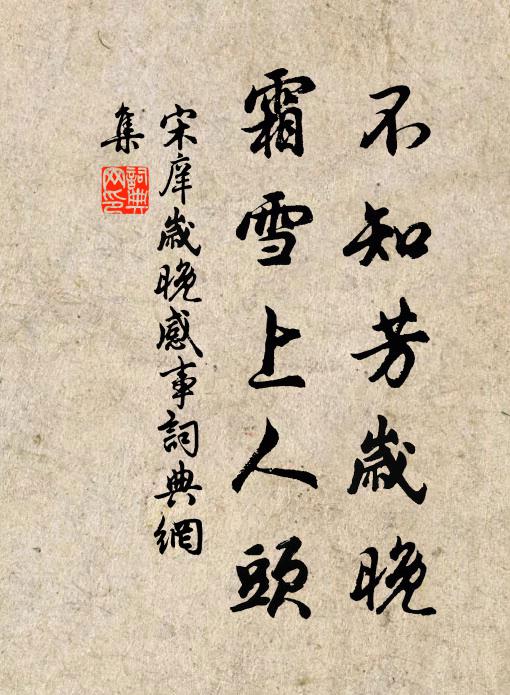 不知芳歲晚
霜雪上人頭
宋庠歲晚感事詞典網
集
詞典
网印